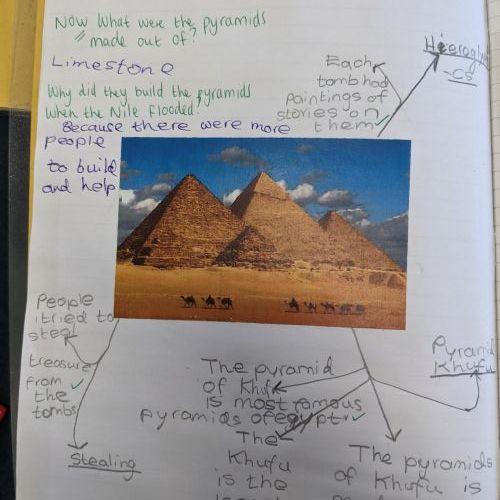 Now What were the pyramids
made out of?
Limestone
Why did they build the pyramids
when the Nile flooded.
Because there were more
people
to build
and help
Each
tomb had
paintings of
stories on
them
Hieroglyph
-cs
People
tried to
steal
treasure
from
the
tombs
Stealing
The pyramid
of Khufu
is most famous
pyramids of egypt
The
Khufu
is the
Pyramid
Khufu
The pyramids
of Khufu is